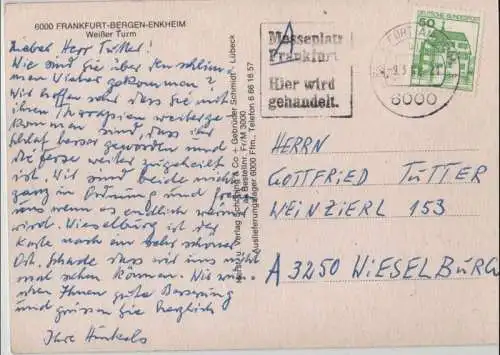 6000 FRANKFURT-BERGEN-ENKHEIM
Weißer Turm
Lieber Herr Tutter!
Wie sind Sie über den schlim-
men Winter gekommen?
Wir hoffen daß Sie mit
ihren Therapien weiterge-
kommen sind, daß der
Schlaf besser geworden und
die Ferse weiter zugeheilt
ist. Wir sind beide nicht
ganz in Ordnung und freuen
uns wenn es endlich wärmer
wird. Wieselburg ist der
Karte nach ein sehr schöner
Ort. Schade dass wir uns nicht
mal sehen können. Wir wün-
schen Ihnen gute Besserung
und grüssen Sie herzlich
Ihre Hinkels
Verlag Schöning & Co + Gebrüder Schmidt · Lübeck
Bestellnr. Fr/M 3000
Auslieferungslager 6000 Ffm., Telefon 6 66 18 57
Messeplatz
Frankfurt
Hier wird
gehandelt.
6000
50
DEUTSCHE BUNDESPOST
HERRN
GOTTFRIED TUTTER
WEINZIERL 153
A 3250 WIESELBURG